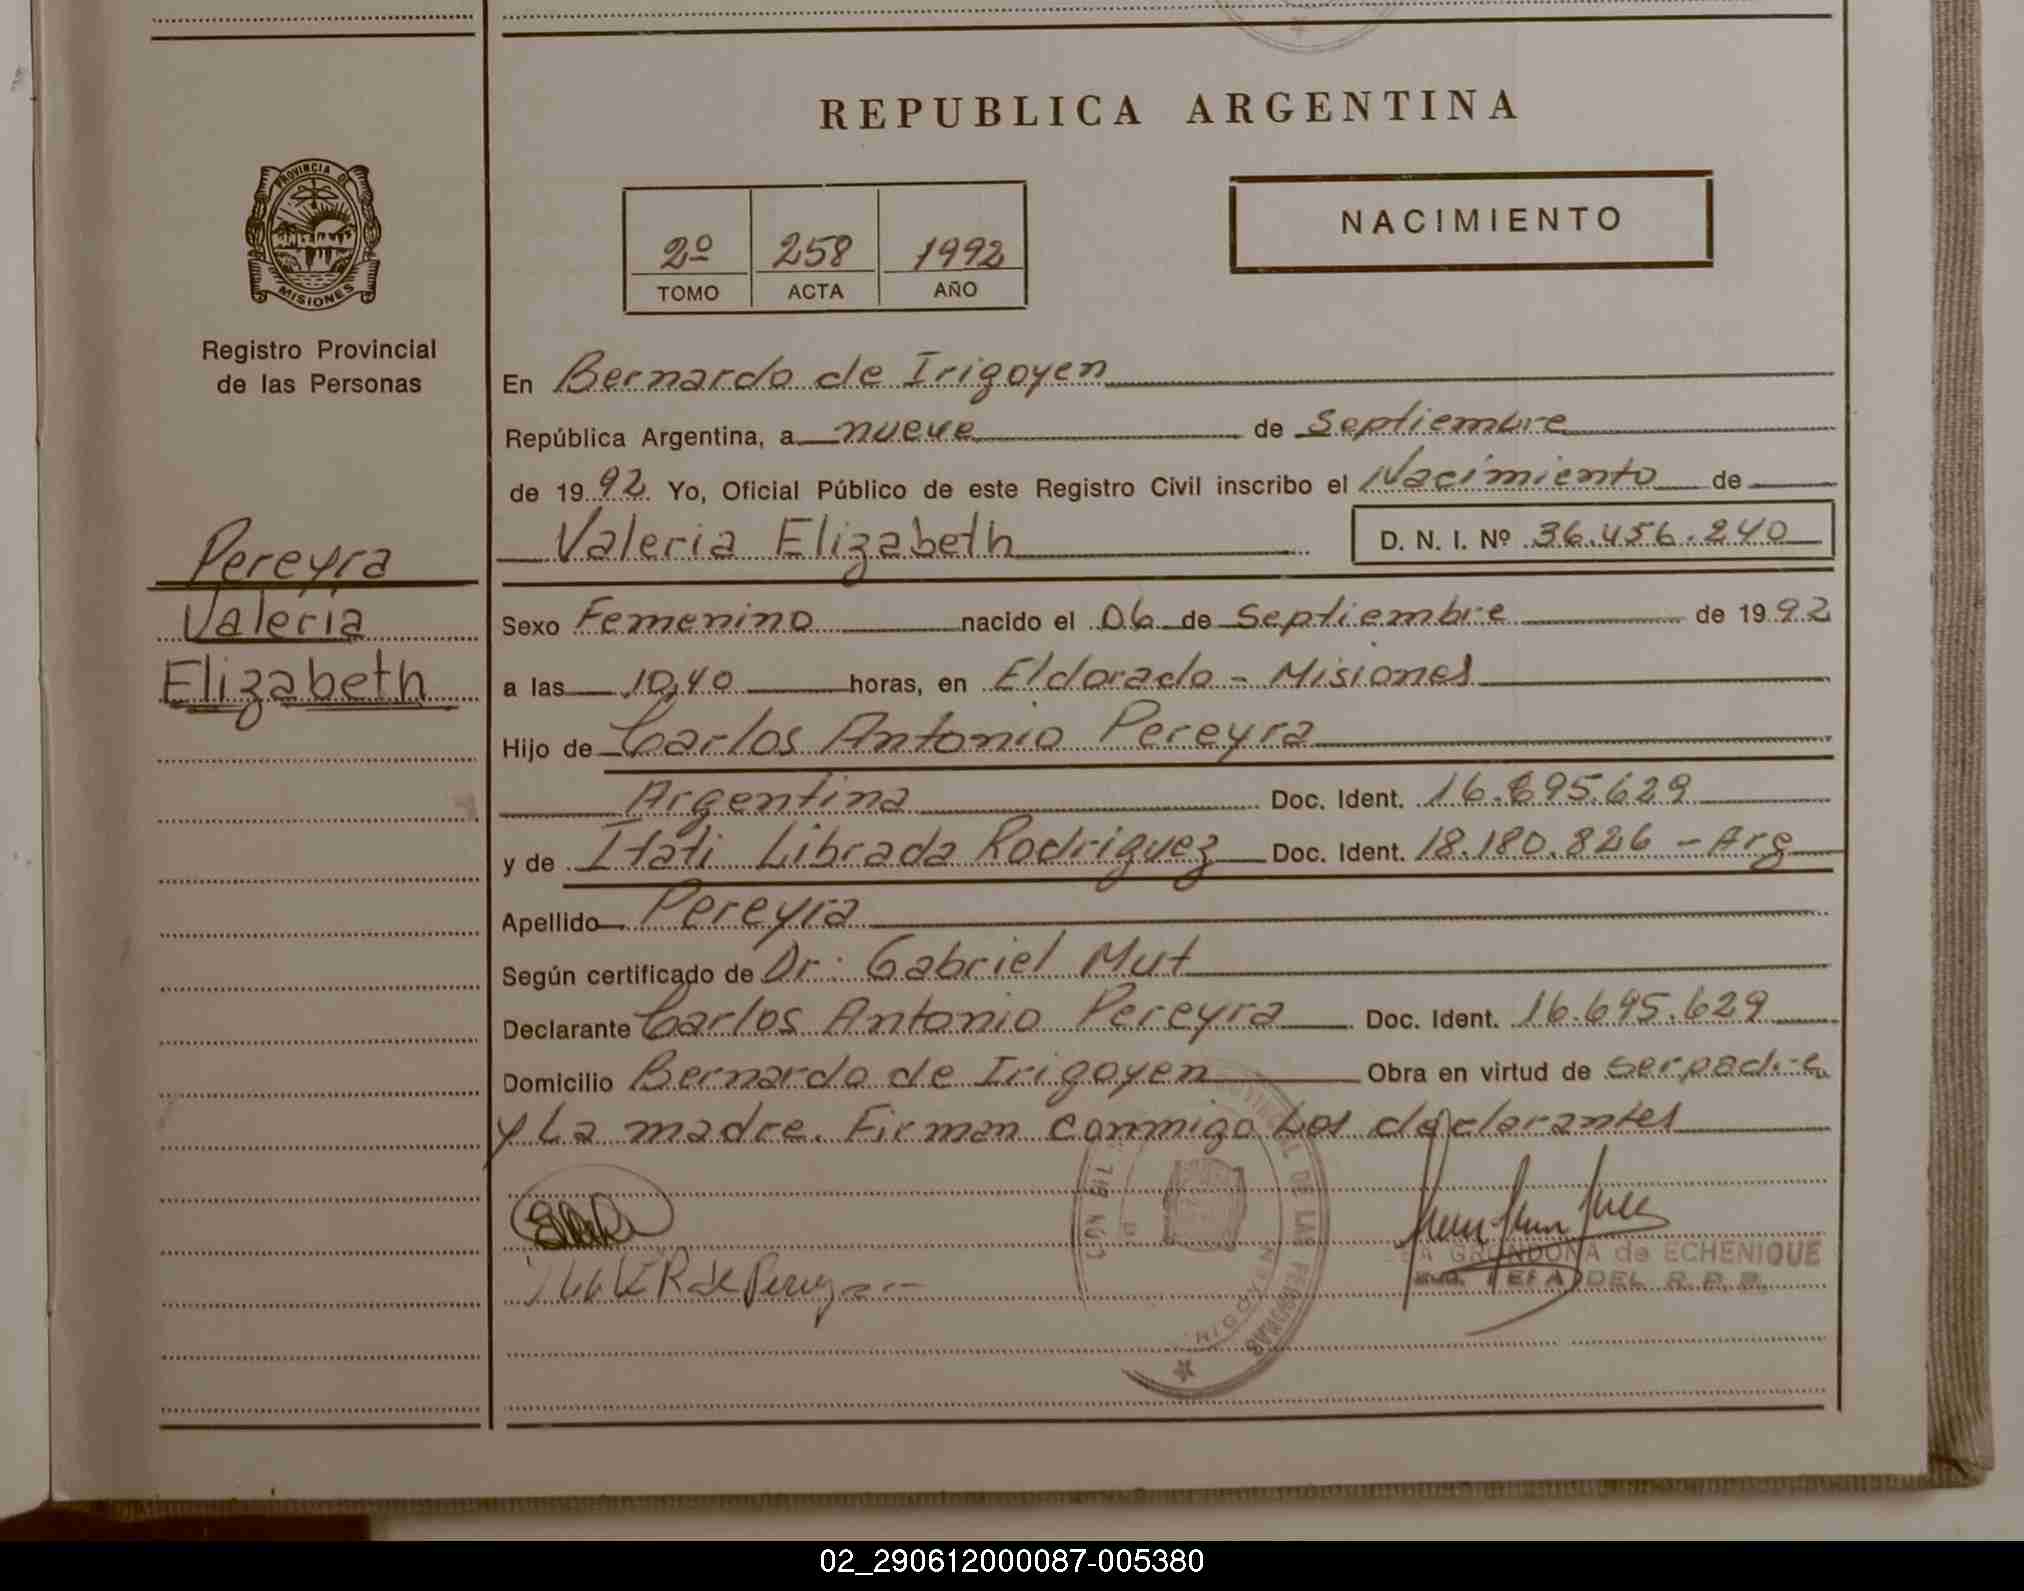 REPUBLICA ARGENTINA
PROVINCIA DE
MISIONES
Registro Provincial
de las Personas
2º 258 1992
TOMO ACTA AÑO
NACIMIENTO
En Bernardo de Irigoyen
República Argentina, a nueve de Septiembre
de 1992. Yo, Oficial Público de este Registro Civil inscribo el Nacimiento de
Valeria Elizabeth D. N. I. Nº 36.456.240
Pereyra
Valeria
Elizabeth
Sexo Femenino nacido el 06 de Septiembre de 1992
a las 10,40 horas, en Eldorado - Misiones
Hijo de Carlos Antonio Pereyra
Argentina Doc. Ident. 16.695.629
y de Itati Librada Rodriguez Doc. Ident. 18.180.826 - Arg
Apellido Pereyra
Según certificado de Dr: Gabriel Mut
Declarante Carlos Antonio Pereyra Doc. Ident. 16.695.629
Domicilio Bernardo de Irigoyen Obra en virtud de ser padre
y La madre. Firman conmigo Los declarantes
R de Pereyra
DE LAS PERSONAS
GRONDONA de ECHENIQUE
JEFA DEL R. P. P.
02_290612000087-005380